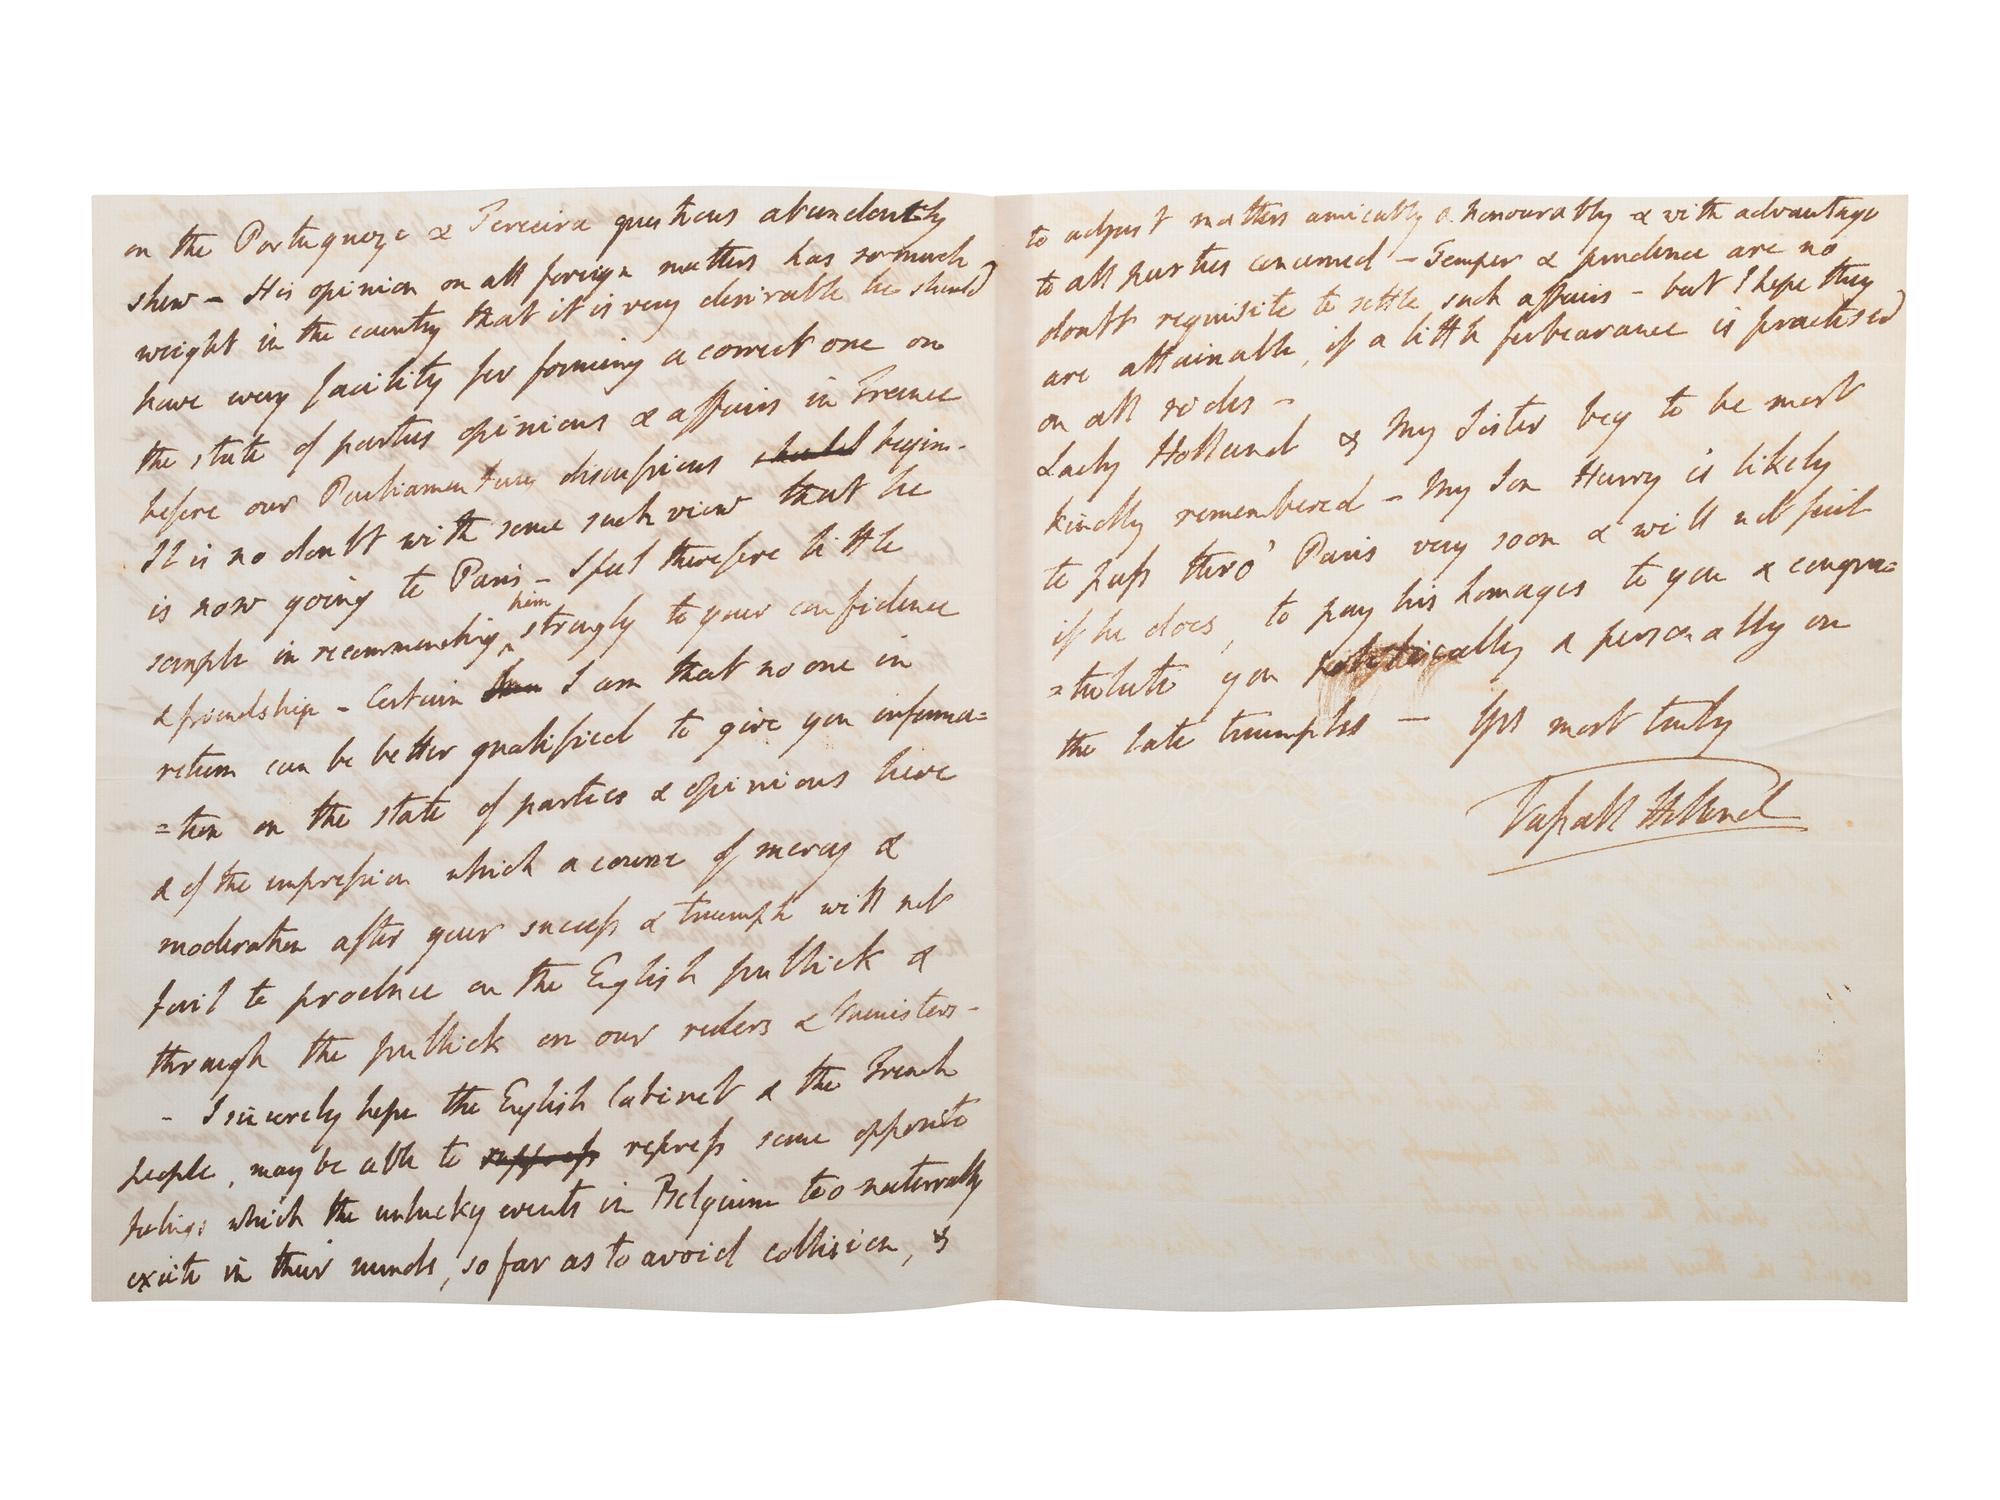 on the Portugueze & Terceira questions abundantly
shew – His opinion on all foreign matters has so much
weight in the country that it is very desirable he should
have every facility for forming a correct one on
the state of parties opinions & affairs in France
before our Parliamentary discussions should begin –
It is no doubt with some such view that he
is now going to Paris – I feel therefore little
scruple in recommending him strongly to your confidence
& friendship – Certain I am that no one in
return can be better qualified to give you informa=
=tion on the state of parties & opinions here
& of the impression which a course of mercy &
moderation after your success & triumph will not
fail to produce on the English publick &
through the publick on our rulers & Ministers –
– I sincerely hope the English Cabinet & the French
people, may be able to suppress repress some opposite
feelings which the unlucky events in Belgium too naturally
excite in their minds, so far as to avoid collision, &
to adjust matters amicably & honourably & with advantage
to all parties concerned – Temper & prudence are no
doubt requisite to settle such affairs – but I hope they
are attainable, if a little forbearance is practised
on all sides –
Lady Holland & My Sister beg to be most
kindly remembered – My Son Harry is likely
to pass thro' Paris very soon & will not fail
if he does, to pay his homages to you & congra=
=tulate you politically & personally on
the late triumphs – Yrs most truly
Vassall Holland